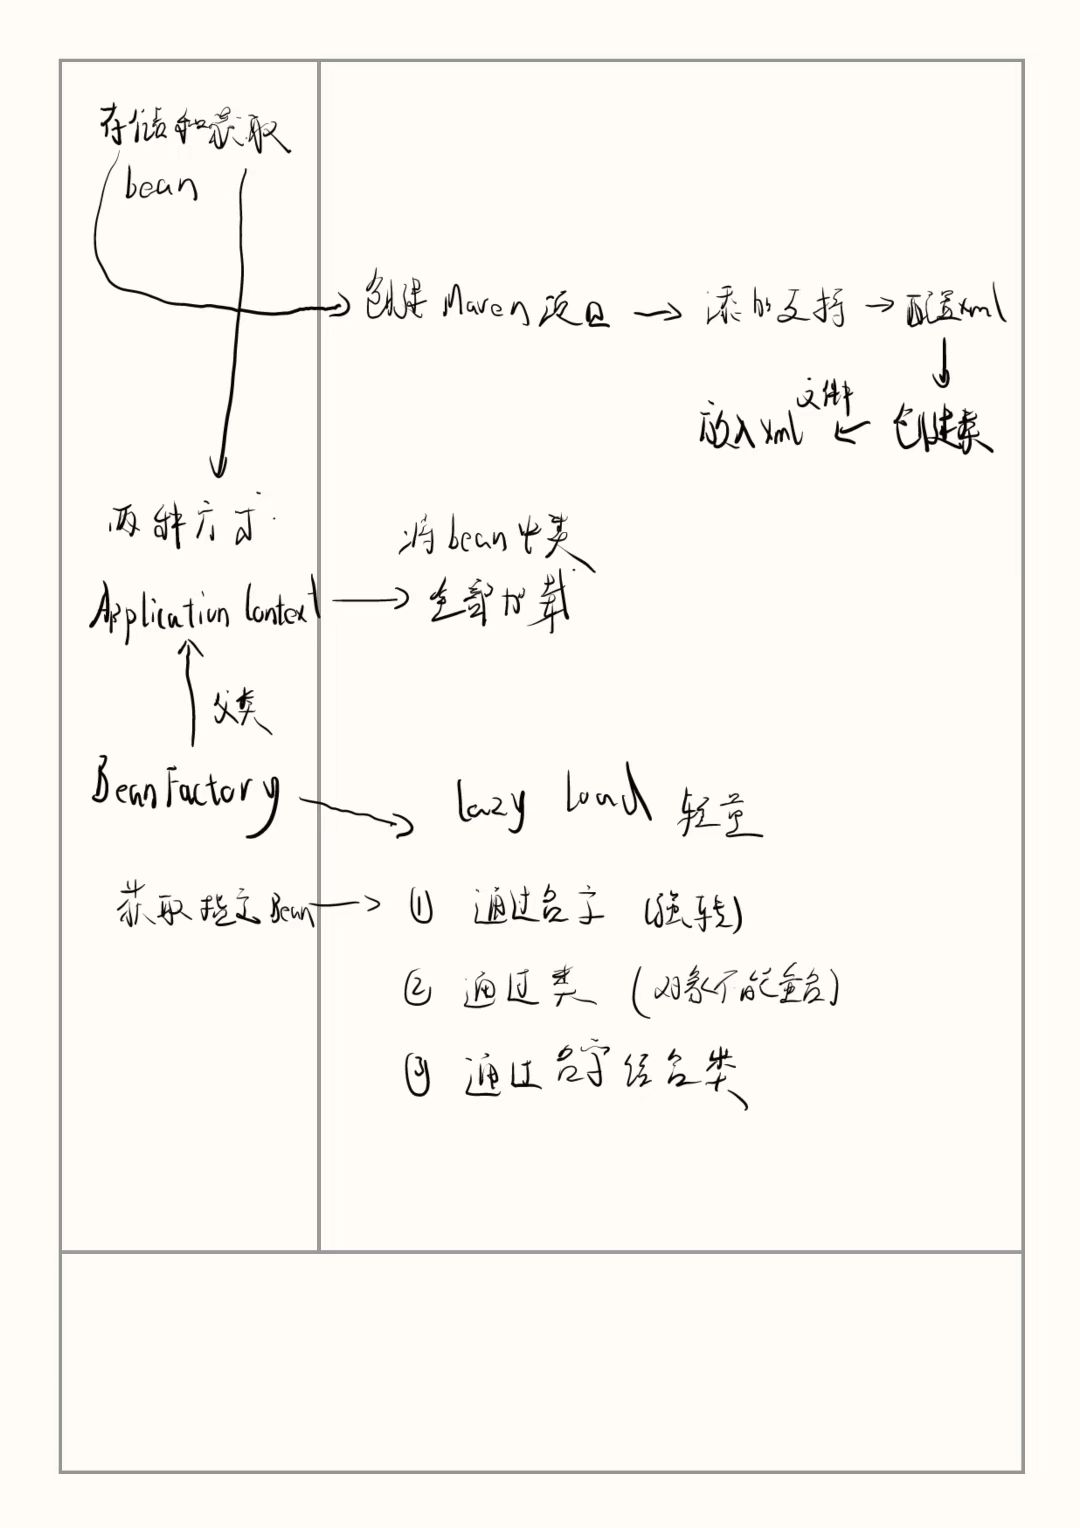 存储和获取
bean
创建Maven项目 → 添加支持 → 配置xml
文件中
放入xml ← 创建类
两种方式
将bean中类
ApplicationContext → 全部加载
父类
BeanFactory → lazy load 轻量
获取指定Bean → ① 通过名字 (强转)
② 通过类 (对象不能重名)
③ 通过名字结合类